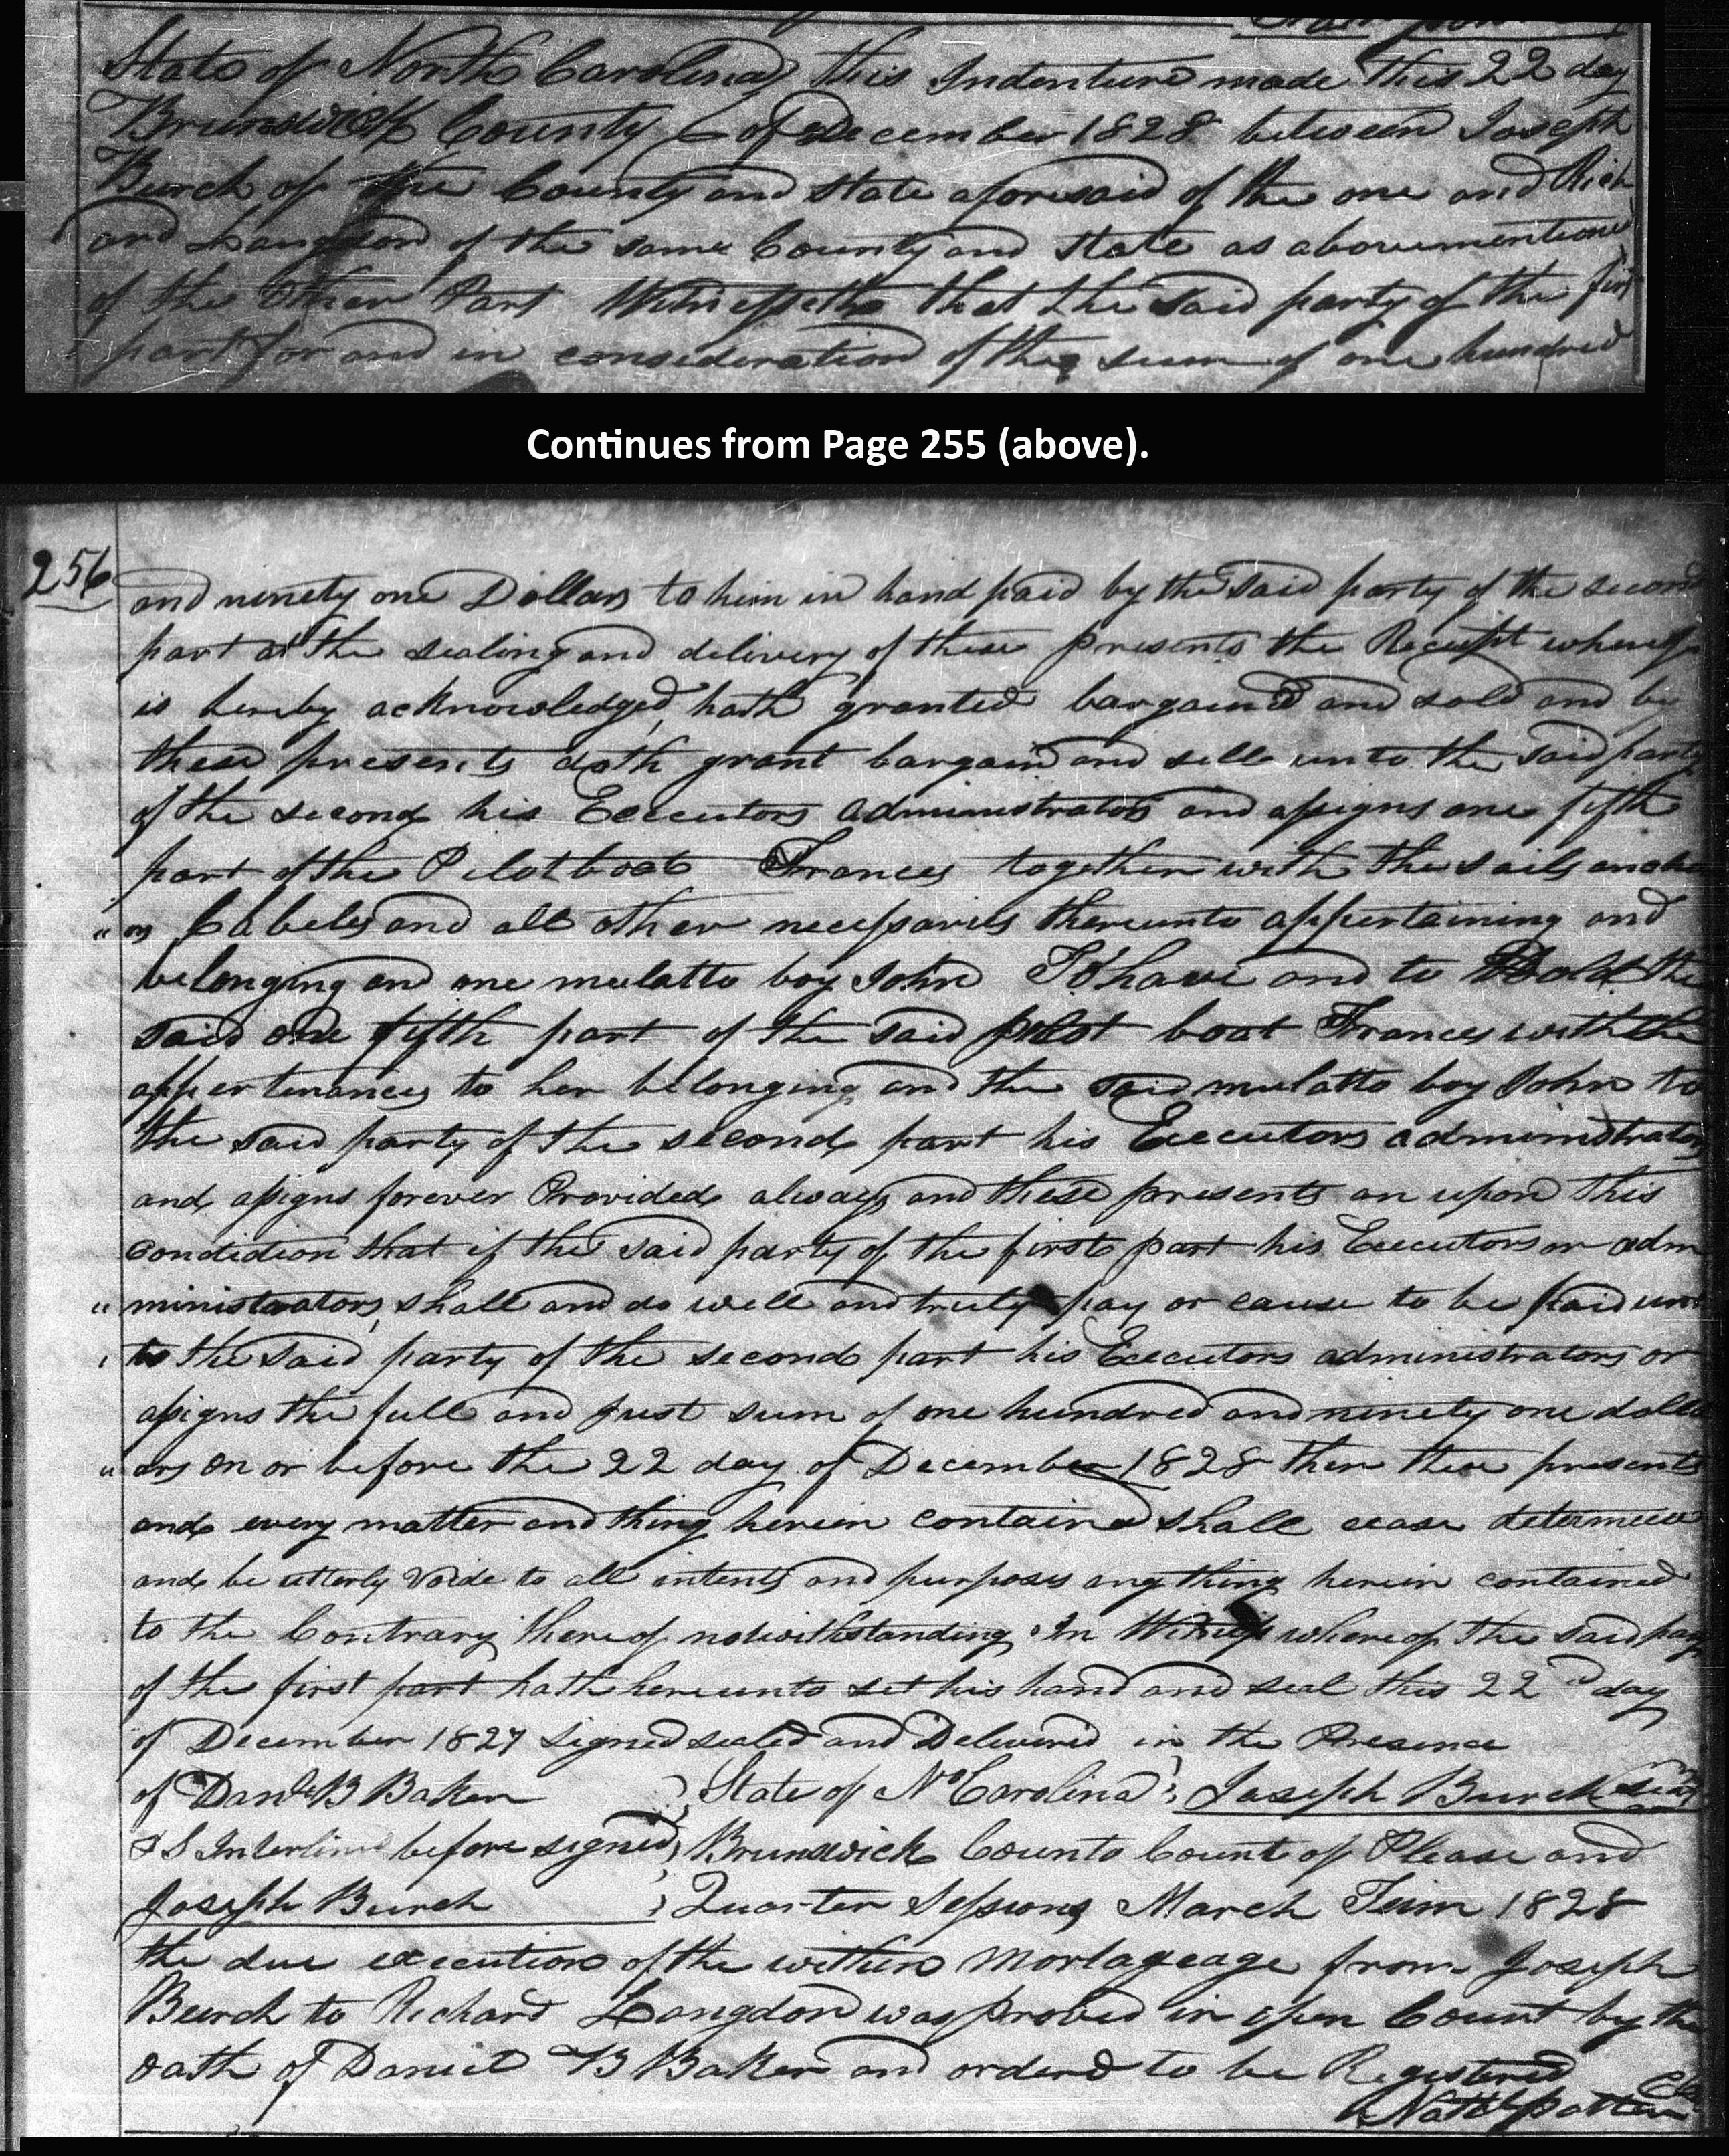 State of North Carolina } this Indenture made this 22 day
Brunswick County } of December 1828 between Joseph
Burch of the County and State aforesaid of the one and Rich
ard Langdon of the same County and State as abovementioned
of the Other Part Witnesseth that the said party of the first
part for and in consideration of the sum of one hundred
Continues from Page 255 (above).
256
and ninety one Dollars to him in hand paid by the said party of the second
part at the sealing and delivery of these presents the Receipt whereof
is hereby acknowledged, hath granted bargaind and sold and by
these presents doth grant bargain and sell unto the said party
of the second his Executors administrators and assigns one fifth
part of the Pilot boat Frances together with the sails anch
" ors Cabels and all other necessaries thereunto appertaining and
belonging and one mulatto boy John To have and to Hold the
said one fifth part of the said pilot boat Frances with the
appertenances to her belonging and the said mulatto boy John to
the said party of the second part his Executors administrators
and assigns forever Provided always and these presents an upon this
condidion that if the said party of the first part his Executors or adm
" ministrators, shall and do well and truly pay or cause to be paid un
, to the said party of the second part his Executors administrators or
assigns the full and just sum of one hundred and ninety one doll
" ars on or before the 22 day of December 1828 then these presents
and every matter and thing herein contained shall cease determine
and be utterly Voide to all intents and purposes any thing herein contained
to the Contrary thereof notwithstanding. In Witness whereof the said party
of the first part hath hereunto set his hand and seal this 22nd day
of December 1827 signed sealed and Delivered in the Presence
of Danl B Baker } State of No Carolina } Joseph Burch Seal
Interlined before signed } Brunswick County Count of Please and
Joseph Burch } Quarter Sessions March Turm 1828
the due execution of the within Mortageage from Joseph
Burch to Richard Langdon was proved in open Count by the
oath of Daniel B Baker and orderd to be Registered
Nathl Potter Clk